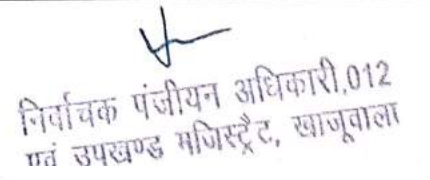 निर्वाचक पंजीयन अधिकारी,012
एवं उपखण्ड मजिस्ट्रैट, खाजूवाला